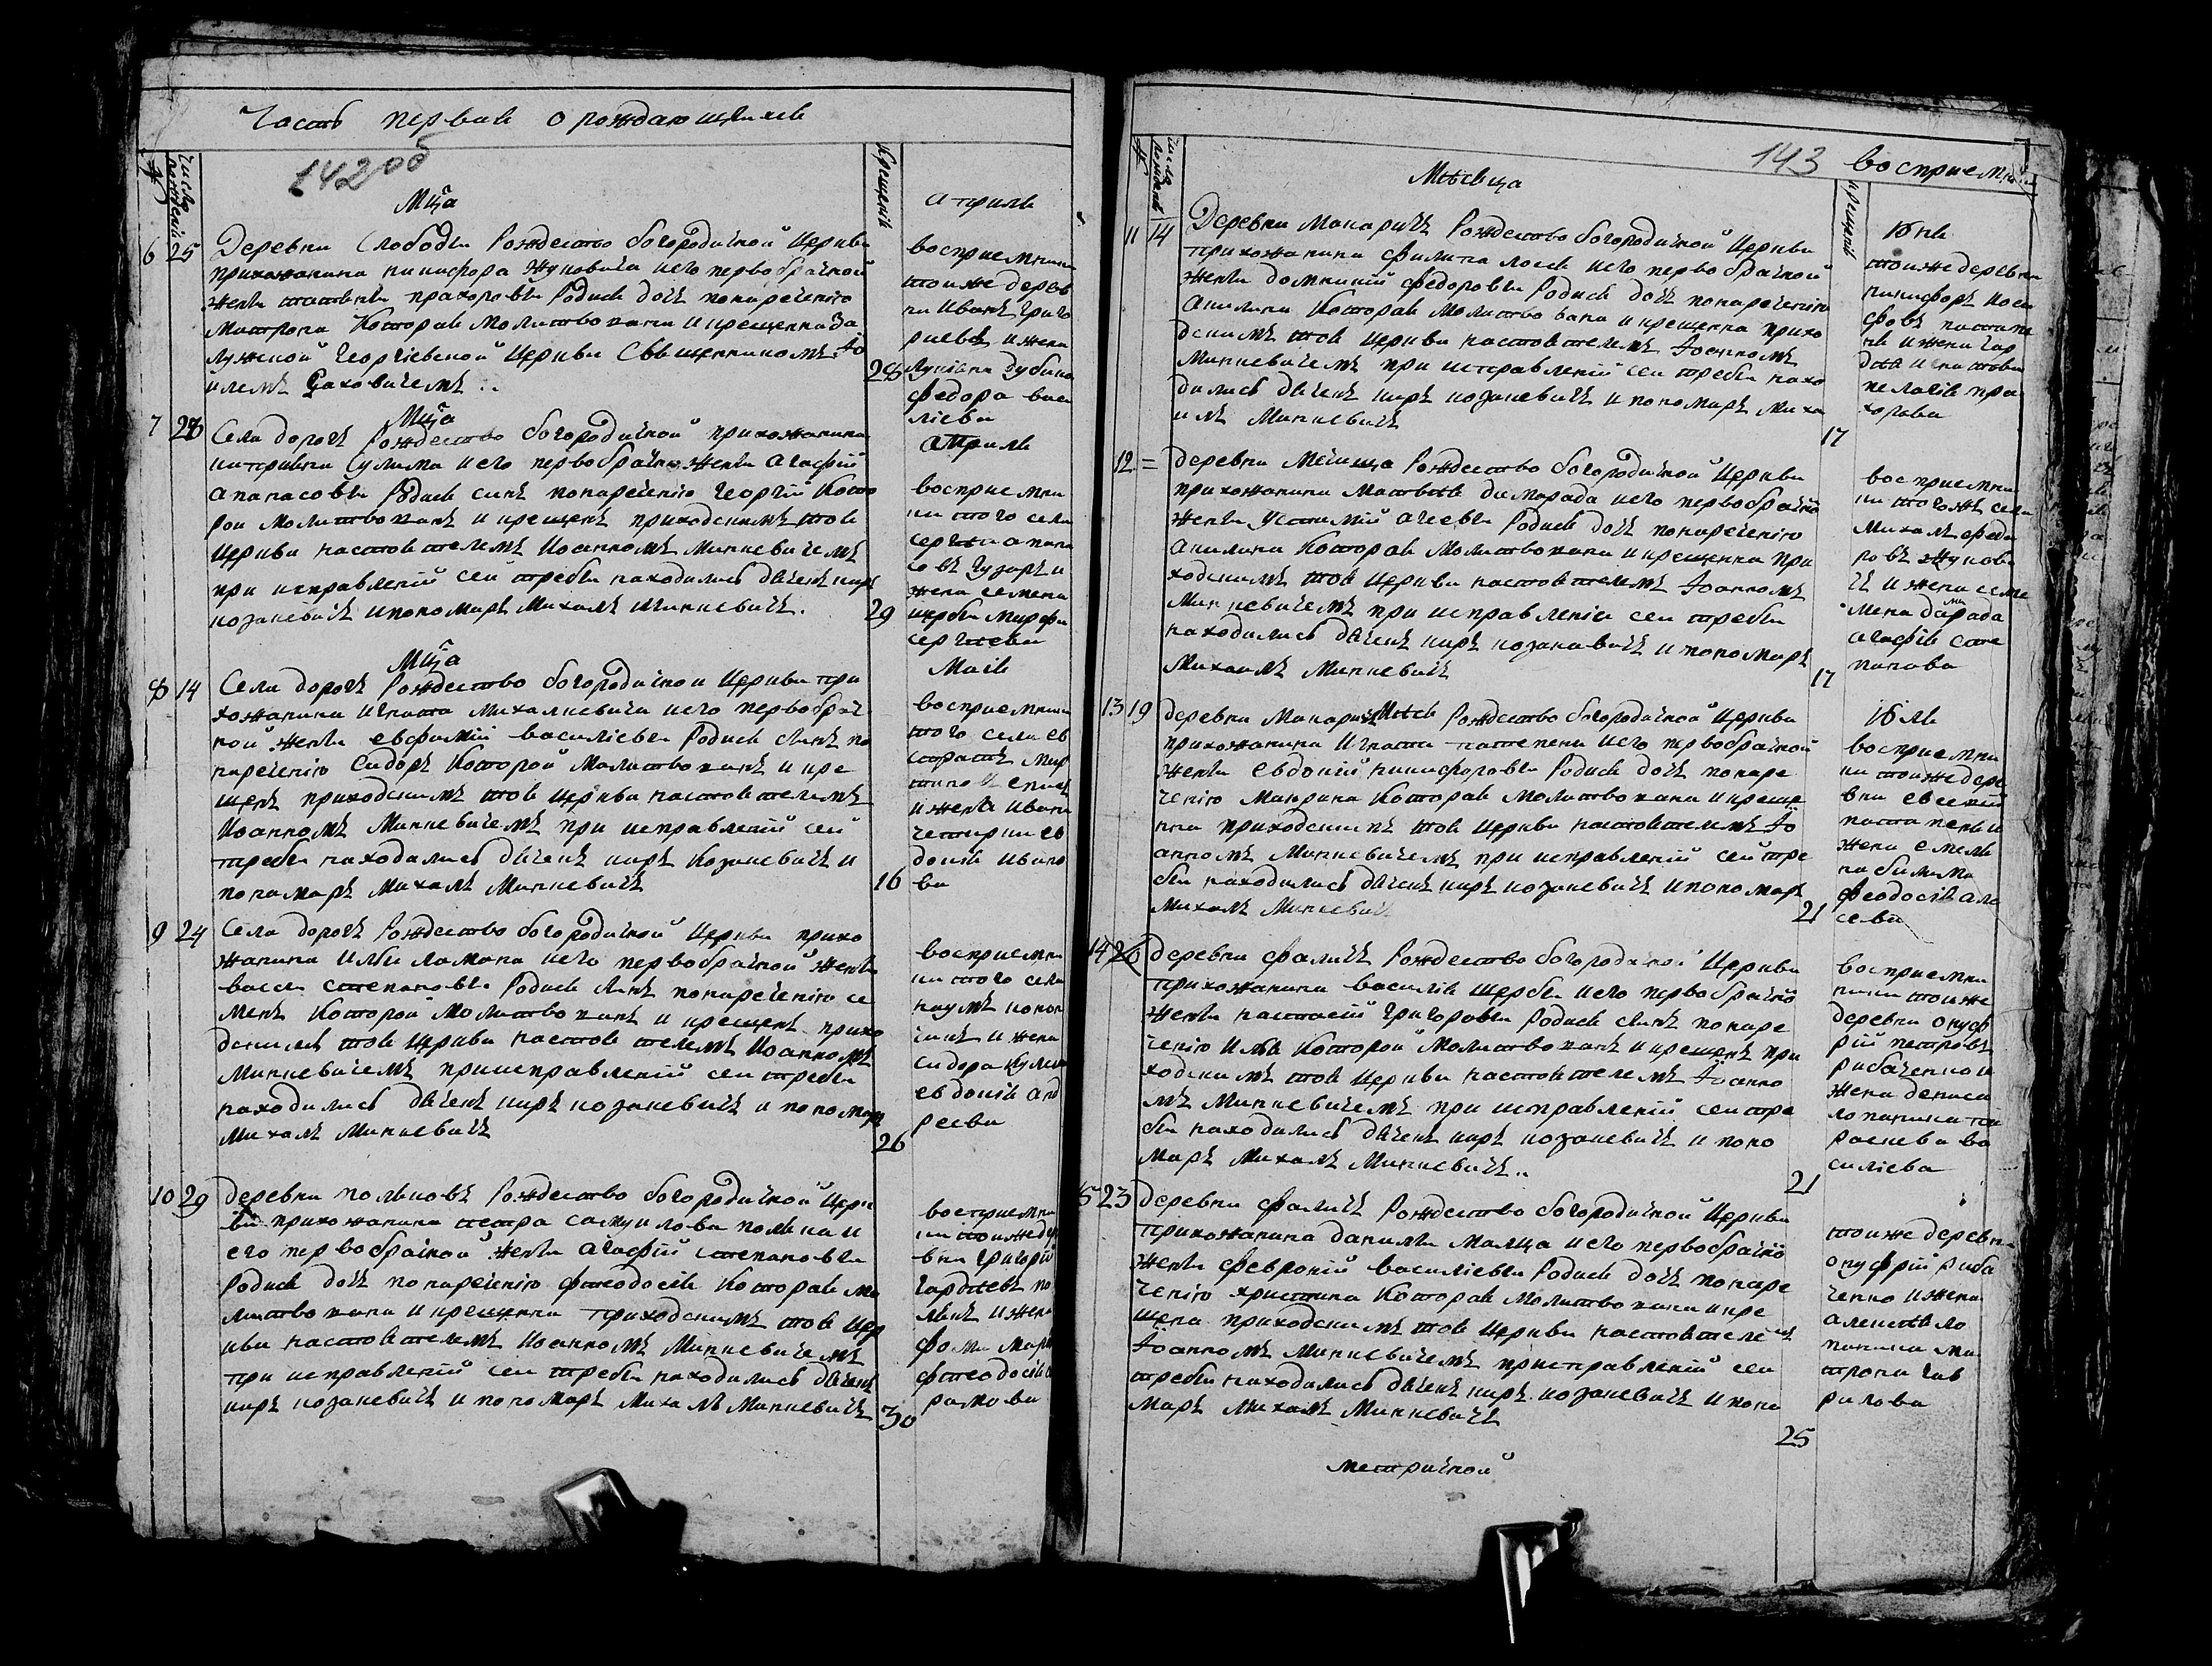 Часть первая о рождающихся
142об
№
Число рождений
Крещения
Мца
априля
6 25
Деревни Слободы Рождество богородичной церкви
прихожанина никифора жуковича и его первобрачной
жены татьяны прахоровы родися дочь понаречению
Матрона Которая молитвована и крещенна За
лужской георгіевской церкви священникомъ Іо
илемъ
28
восприемники
тоиже дерев
ни Иванъ григо
риевъ и жена
федора васи
лиева
Мца
априля
7 28
Села дорогъ Рождество богородичной прихожанина
киприяна Сулима и его первобрачно жены агафіи
апанасовы родися синъ понаречению георгій Кото
рои молитвованъ и крещенъ приходскимъ тоя
церкви настоятелемъ Иоанномъ Минкевичемъ
при исправленіи сей требы находились дячекъ киръ
козакевичъ и пономаръ Михалъ Минкевичъ.
29
восприемни
ки того села
сергеи апана
совъ гузаръ и
жена семена
щербы марфа
сергиева
Мца
Мая
8 14
Села дорогъ Рождество богородичнои церкви при
хожанина игната михалкевича и его первобрач
ной жены евфиміи василіевы родися синъ по
наречению Сидоръ Которой молитвованъ и кре
щенъ приходскимъ тоя церкви настоятелемъ
Иоанномъ Минкевичемъ при исправленіи сей
требы находились дячекъ киръ Козакевичъ и
понамаръ Михалъ Минкевичъ
16
восприемники
того села ев
и жена ивана
ев
докія ивано
ва
9 24
Села дорогъ Рождество богородичной церкви прихо
жанина Ильи ламана и его первобрачной жены
васси степановы родися синъ понаречению се
менъ Которой молитвованъ и крещенъ прихо
дскимъ тоя церкви настоятелемъ Иоанномъ
Минкевичемъ приисправленій сеи требы
находились дячекъ киръ козакевичъ и пономаръ
Михалъ Минкевичъ
26
восприемни
ки того села
наумъ конон
чикъ и жена
сидора
евдокія анд
реева
10 29
деревни поляковъ Рождество богородичной церк
ви прихожанина петра самуилова поляка и
его первобрачной жены агафіи степановы
родися дочь понаречению фтеодосія Которая мо
литвована и крещенна приходскимъ тоя цер
кви настоятелемъ Иоанномъ Минкевичемъ
при исправленій сеи требы находились дячекъ
киръ козакевичъ и пономаръ Михалъ Минкевичъ
30
восприемни
ки тоиже де
вни григорій
гордеевъ по
лякъ и жена
фомы
фтеодосія
рамова
143
восприемники
№
Число рождения
Крещенія
Мѣсяца
Юня
11 14
Деревни Макаричъ Рождество богородичной церкви
прихожанина филипа лося и его первобрачной
жены домникій федоровы родися дочь понаречению
акилина Которая молитвована и крещенна прихо
дскимъ тоя церкви настоятелемъ Іоанномъ
Минкевичемъ при исправленіи сеи требы нахо
дились дячекъ киръ козакевичъ и пономаръ миха
илъ Минкевичъ
17
тоиже деревни
никифоръ иоси
фовъ
жена гор
дея
пелагия про
хорова
12 =
деревни Мечища Рождество богородичной церкви
прихожанина Матвея димарада и его первобрачно
жены Устиміи агеевы родися дочь понаречению
акилина Которая молитвована и крещенна при
ходскимъ тоя церкви настоятелемъ Іоанномъ
Минкевичемъ при исправленіи сеи требы
находились дячекъ киръ козакавичъ и пономаръ
Михаилъ Минкевичъ
17
восприемни
ки тогожъ села
михалъ федо
ровъ жукови
чъ и жена семе
мена димарада
агафія сте
панова
Мѣся
Юля
13 19
деревни Макаричъ Рождество богородичной церкви
прихожанина Игната пастепени и его первобрачной
жены евдокіи никифоровы родися дочь понаре
чению Макрина Которая молитвована и креще
нна приходскимъ тоя церкви настоятелемъ Іо
анномъ Минкевичемъ при исправленій сей тре
бы находились дячекъ киръ козакевичъ и пономаръ
Михалъ Минкевичъ
21
восприемни
ки тоиже дере
вни евсевій
жена емеля
на
феодосія але
сева
14 20
деревни фаличъ Рождество богородичной церкви
прихожанина василія щербы и его первобрачно
жены настасіи григоровы родися синъ понаре
чению илья Которой молитвованъ и крещенъ при
ходскимъ тоя церкви настоятелемъ Іоанно
мъ Минкевичемъ при исправленій сеи тре
бы находились дячекъ киръ козакевичъ и поно
маръ Михалъ Минкевичъ..
21
восприемни
ники тоиже
деревни онуф
рій петровъ
рибаченко и
жена дениса
лопатика па
раскева ва
силіева
15 23
деревни фаличъ Рождество богородичной церкви
прихожанина данилы малца и его первобрачно
жены февроніи василіевы родися дочь понаре
чению христина Которая молитвована и кре
щена приходскимъ тоя церкви настоятелемъ
Іоанномъ Минкевичемъ приисправленій сеи
требы находились дячекъ киръ козакевичъ и поно
маръ Михалъ Минкевичъ
25
тоиже деревни
онуфрій риба
ченко и жена
алексея ло
патика ма
трона гав
рилова
метричной